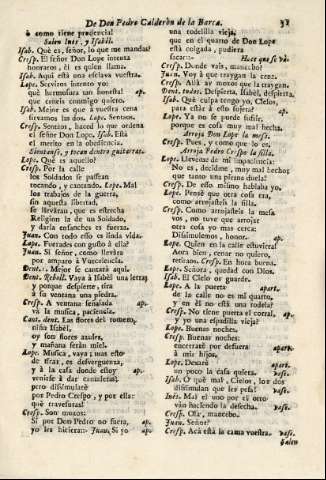 De Don Pedro Calderon de la Barca. 31
ò como tiene prudencia!
Salen Inès, y Isabèl.
Isab. Què es, señor, lo que me mandas?
Cresp. El señor Don Lope intenta
honraros, èl es quien llama.
Isab. Aqui està una esclava vuestra.
Lope. Serviros intento yo:
què hermosura tan honesta! ap.
que ceneis conmigo quiero.
Isab. Mejor es que à vuestra cena
sirvamos las dos. Lope. Sentaos.
Cresp. Sentaos, haced lo que ordena
el señor Don Lope. Isab. Està
el merito en la obediencia.
Sientanse, y tocan dentro guitarras.
Lope. Què es aquello?
Cresp. Por la calle
los Soldados se passean
tocando, y cantando. Lope. Mal
los trabajos de la guerra,
sin aquesta libertad,
se llevàran, que es estrecha
Religion la de un Soldado,
y darla ensanches es fuerza.
Juan. Con todo esso es linda vida.
Lope. Fuerades con gusto à ella?
Juan. Sì señor, como llevàra
por amparo à Vuecelencia.
Dent. 1. Mejor se cantarà aqui.
Dent. Reboll. Vaya à Isabèl una letra,
y porque despierte, tira
à su ventana una piedra.
Cresp. A ventana señalada ap.
và la musica, paciencia.
Cant. dent. Las flores del romero,
niña Isabèl,
oy son flores azules,
y mañana seràn miel.
Lope. Musica, vaya; mas esto ap.
de tirar, es desverguenza,
y à la casa donde estoy
venirse à dar cantaletas!
pero dissimularè
por Pedro Crespo, y por ella:
què travessuras!
Cresp. Son mozos:
si por Don Lope no fuera, ap.
yo les hiciera: Juan. Si yo
una rodelilla vieja,
que en el quarto de Don Lope
està colgada, pudiera
sacar: Hace que se và.
Cresp. Donde vais, mancebo?
Juan. Voy à que traygan la cena.
Cresp. Allà ay mozos que la traygan.
Dent. todos. Despierta, Isabèl, despierta.
Isab. Què culpa tengo yo, Cielos,
para estàr à esto sujeta? ap.
Lope. Ya no se puede sufrir,
porque es cosa muy mal hecha.
Arroja Don Lope la mesa.
Cresp. Pues, y como que lo es.
Arroja Pedro Crespo la silla.
Lope. Llevème de mi impaciencia:
No es, decidme, muy mal hecho
que tanto una pierna duela?
Cresp. De esso mismo hablaba yo.
Lope. Pensè que otra cosa era,
como arrojasteis la silla.
Cresp. Como arrojasteis la mesa
vos, no tuve que arrojar
otra cosa yo mas cerca:
Dissimulemos, honor. ap.
Lope. Quien en la calle estuviera!
Aora bien, cenar no quiero,
retiraos. Cresp. En hora buena.
Lope. Señora, quedad con Dios.
Isab. El Cielo or guarde.
Lope. A la puerta apart.
de la calle no es mi quarto,
y en èl no està una rodela?
Cresp. No tiene puerta el corral, ap.
y yo una espadilla vieja?
Lope. Buenas noches.
Cresp. Buenas noches:
encerrarè por defuera apart.
à mis hijos.
Lope. Dexarè apart.
un poco la casa quieta. vase.
Isab. O què mal, Cielos, los dos
dissimulan que les pesa! vase.
Inès. Mal el uno por el otro
vàn haciendo la deshecha. vase.
Cresp. Ola, mancebo.
Juan. Señor?
Cresp. Acà està la cama vuestra. vase.
Salen